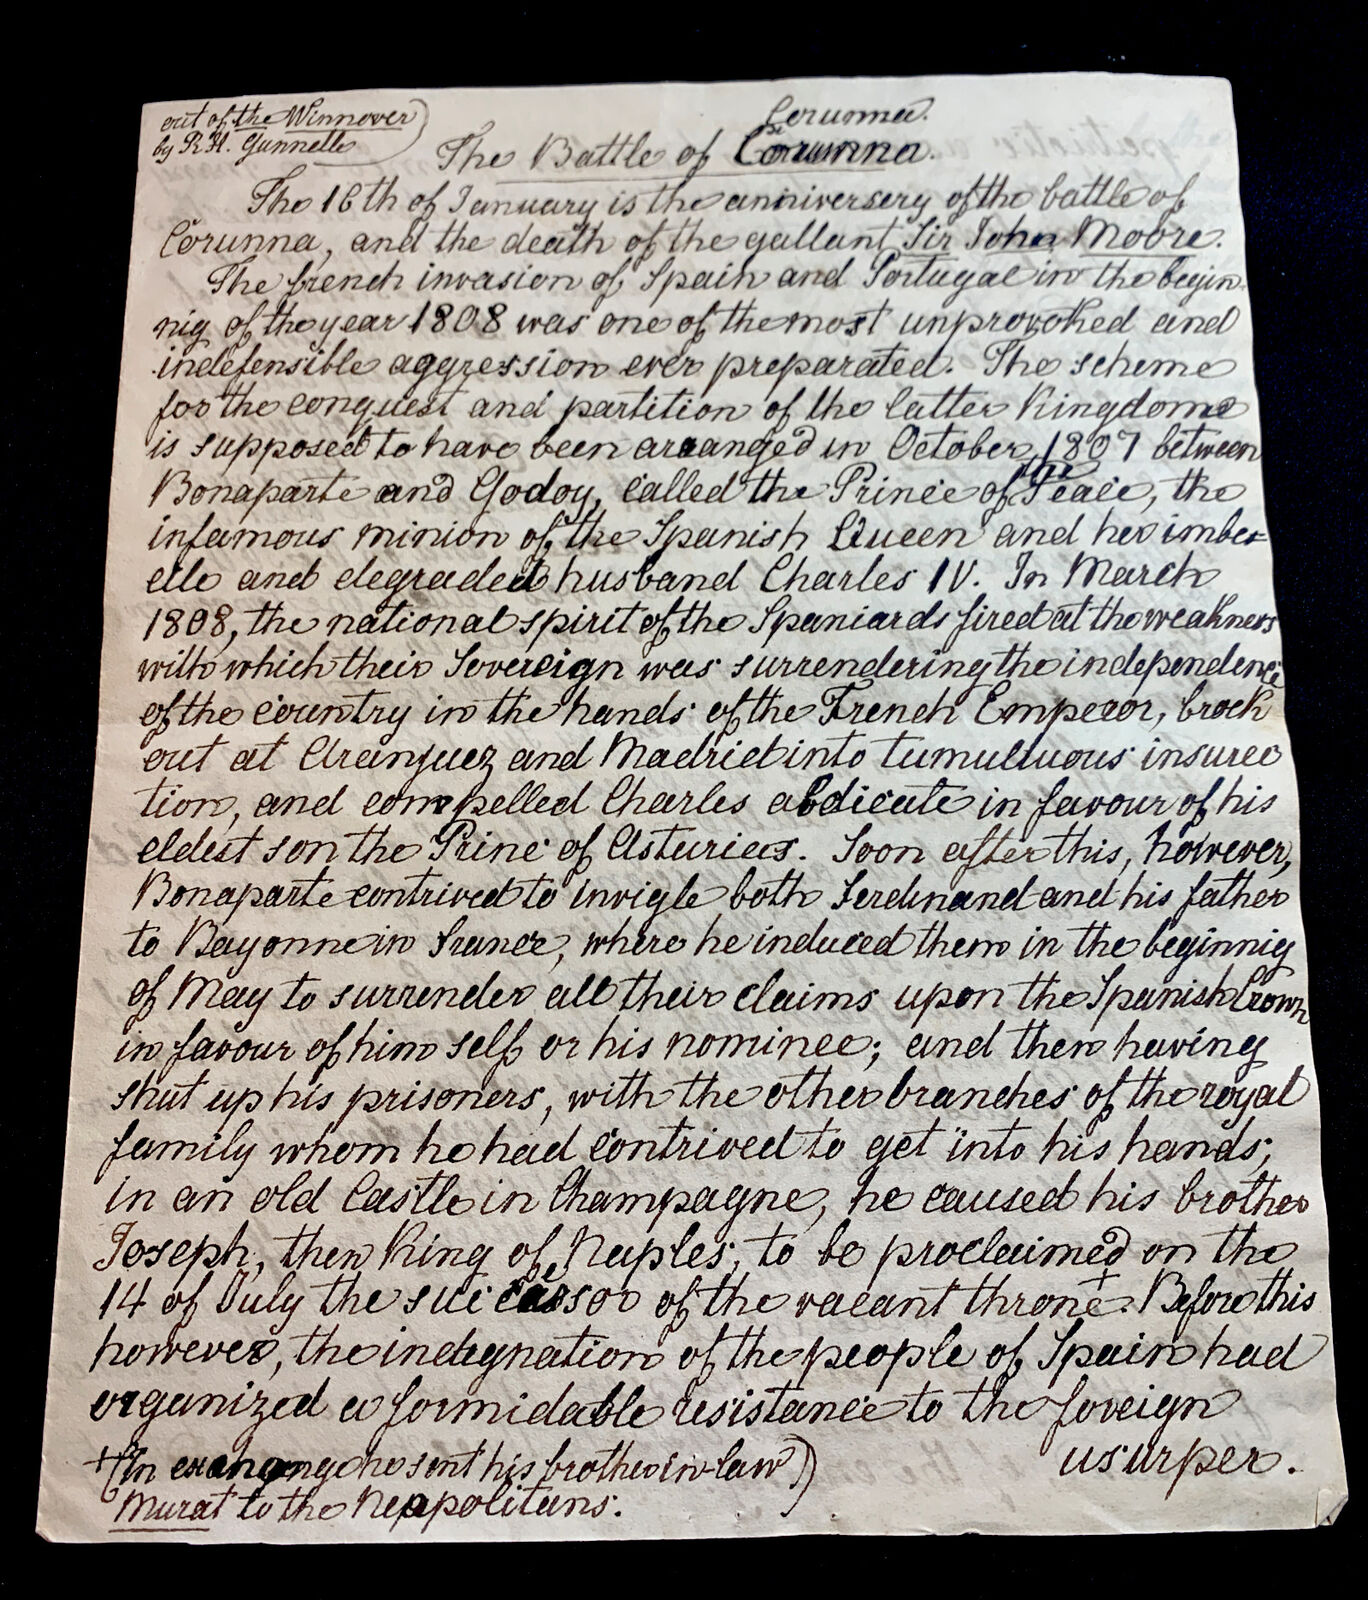 out of the Winnover
by R H. Gunnelle
Corunna.
The Battle of Corunna.
The 16th of January is the anniversery of the battle of
Corunna, and the death of the gallant Sir John Moore.
The french invasion of Spain and Portugal in the begin-
nig of the year 1808 was one of the most unprovoked and
indefensible aggression ever preparated. The scheme
for the conquest and partition of the latter Kingdome
is supposed to have been arranged in October, 1807 between
Bonaparte and Godoy, called the Prince of the Peace, the
infamous minion of the Spanish Queen and her imbe-
cile and degraded husband Charles IV. In March
1808, the national spirit of the Spaniards fired at the weakness
with which their Sovereign was surrendering the independence
of the country in the hands of the French Emperor, brock
out at Aranjuez and Madrid into tumultuous insurec
tion, and compelled Charles abdicate in favour of his
eldest son the Princ of Asturies. Soon after this, however,
Bonaparte contrived to invigle both Ferdinand and his father
to Bayonne in France, where he induced them in the beginnig
of May to surrender all their claims upon the Spanish Crown
in favour of him self or his nominee; and then having
shut up his prisoners, with the other branches of the royal
family whom he had contrived to get into his hands,
in an old Castle in Champagne, he caused his brother
Joseph, then King of Naples, to be proclaimed on the
14 of July the successor of the vacant throne.+ Before this
however, the indegnation of the people of Spain had
organized a formidable resistance to the foreign
usurper.
+(In exchange he sent his brother in-law)
Murat to the Neapolitans.